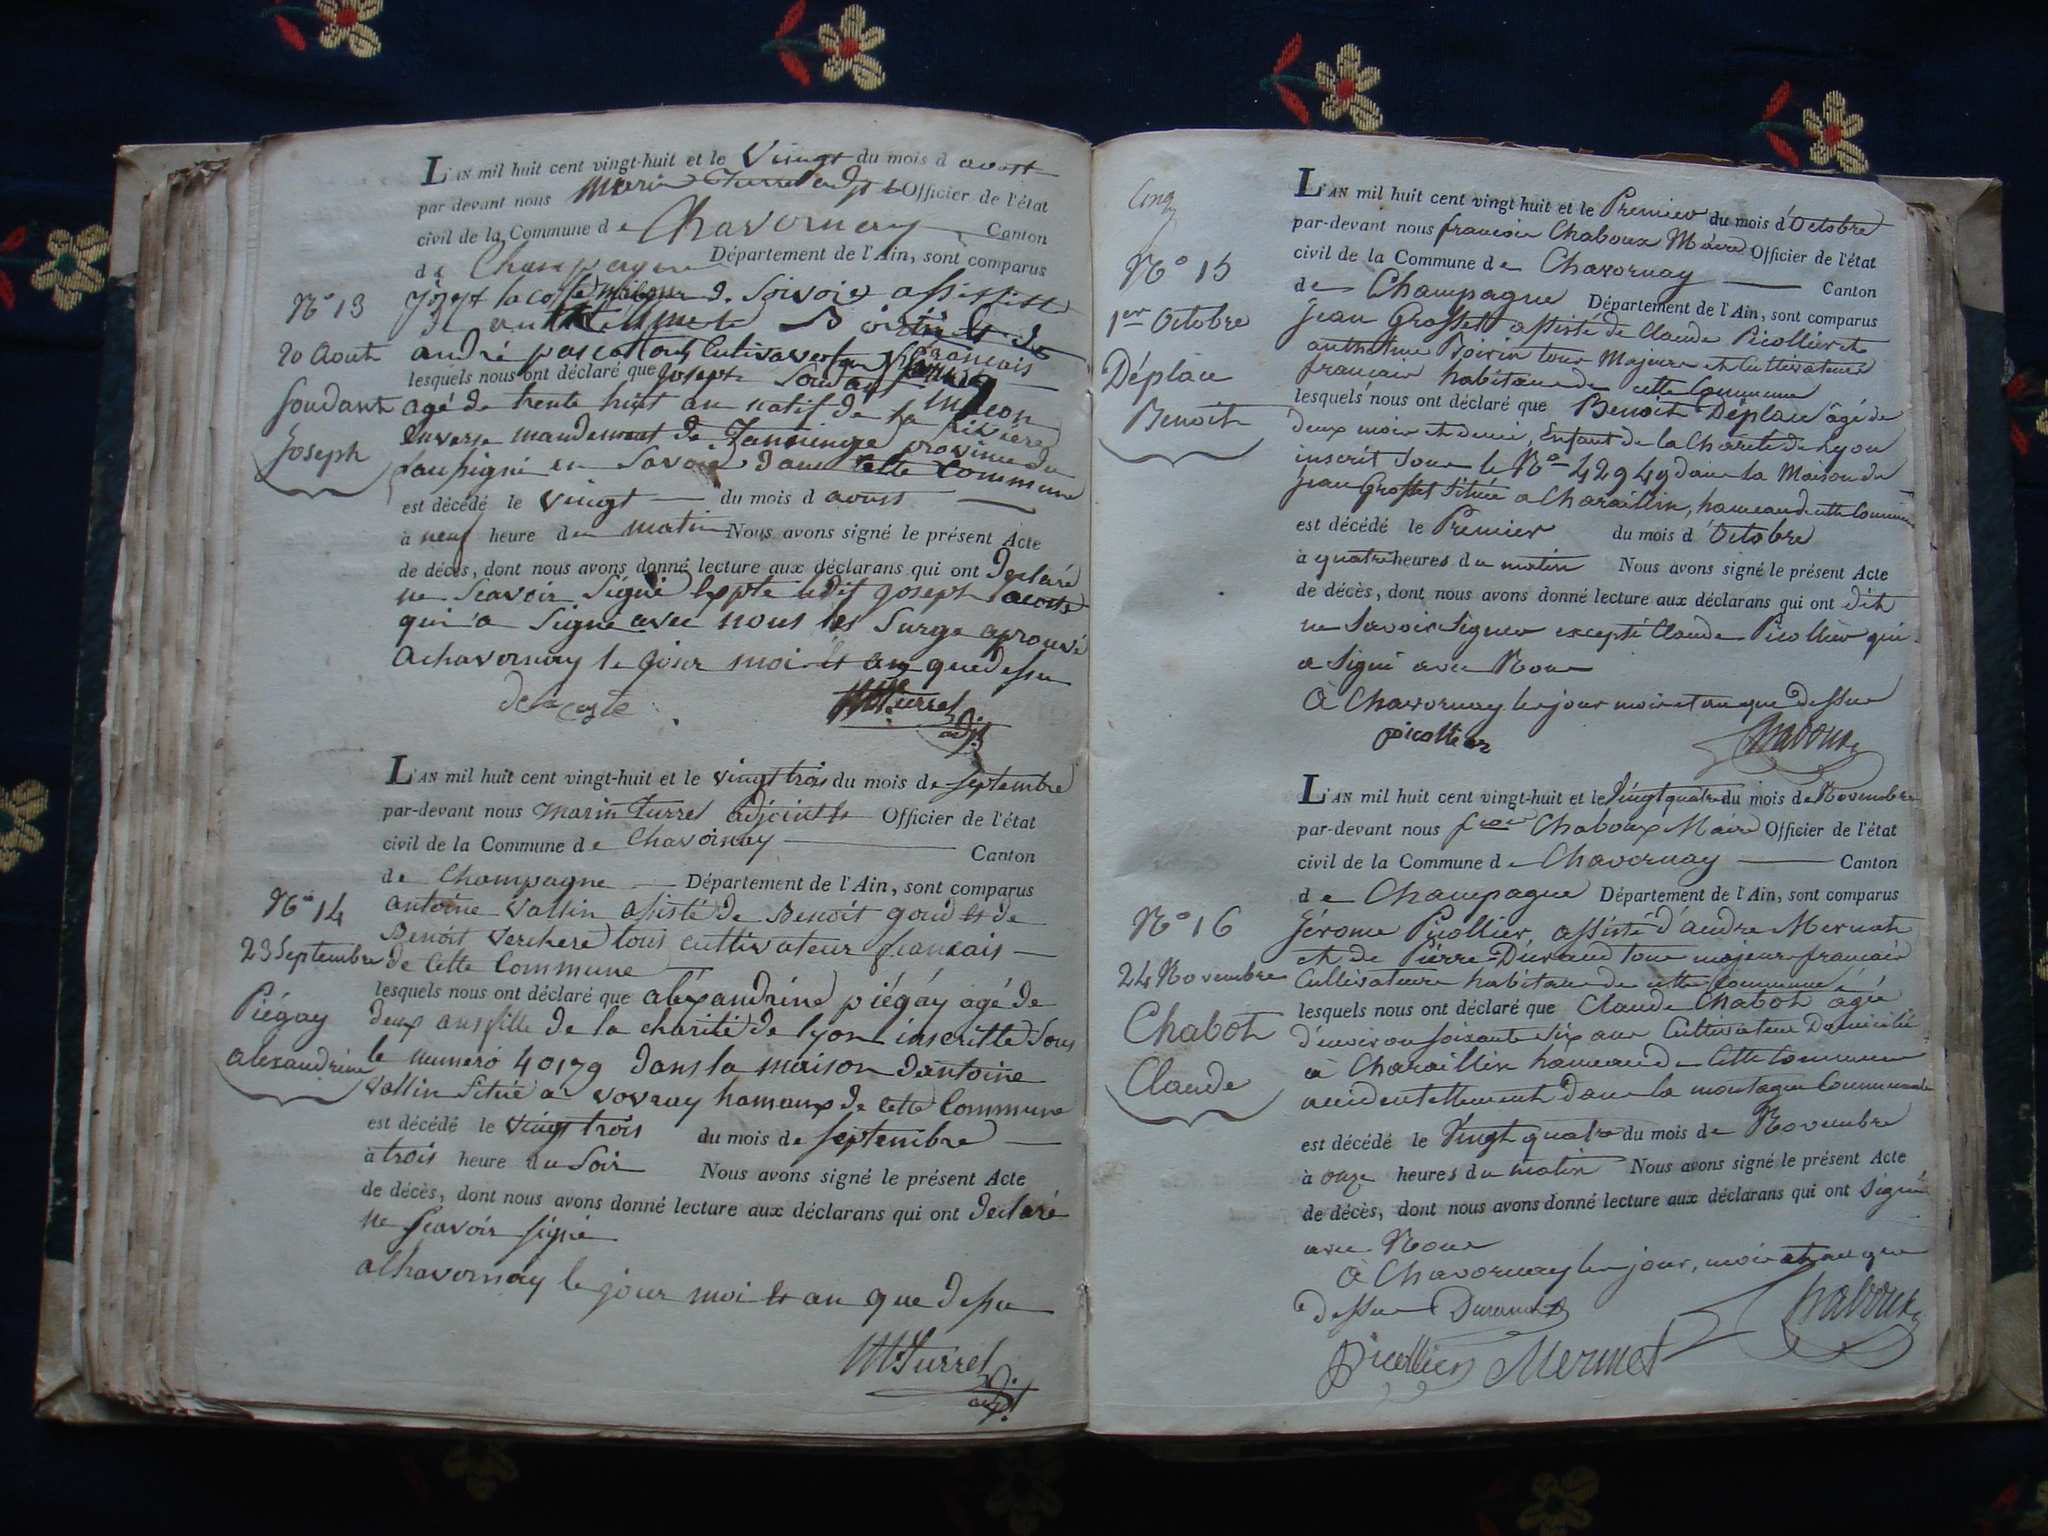 L'AN mil huit cent vingt-huit et le Vingt du mois d aoust
par devant nous Marin Turrel adjt Officier de l'état
civil de la Commune de Chavornay Canton
de Champagne Département de l'Ain, sont comparus
N° 13
Joseph la coste de Soivoie assiste
20 Aout
andré français
lesquels nous ont déclaré que Joseph
Soudant
agé de trente huit an natif de la Rivière
enverse mandement de Tanninge province du
Joseph
faussigni en Savoie dans cette Commune
est décédé le vingt du mois d aoust
à neuf heure du matin Nous avons signé le présent Acte
de décès, dont nous avons donné lecture aux déclarans qui ont declaré
ne Scavoir Signé Lepte ledit Joseph lacoste
qui a Signe avec nous les Surge aprouvé
a chavornay le jour moi et an que dessu
delacoste MTurrel
adjt
L'AN mil huit cent vingt-huit et le vingt trois du mois de septembre
par-devant nous Marin Turrel adjoint Officier de l'état
civil de la Commune de Chavornay Canton
de Champagne Département de l'Ain, sont comparus
N° 14
antoine Vallin assisté de Benoit goud et de
Benoit Verchere tous cultivateur francais
23 Septembre
de cette Commune
lesquels nous ont déclaré que alexandrine piégay agé de
Piégay
deux ans fille de la charité de lyon inscritte sous
alexandrine
le numero 40179 dans la maison dantoine
Vallin Situé a vovray hameaux de cette Commune
est décédé le vingt trois du mois de septembre
à trois heure du Soir Nous avons signé le présent Acte
de décès, dont nous avons donné lecture aux déclarans qui ont declaré
ne Scavoir signé
a Chavornay le jour moi et an que dessu
MTurrel
adjt
Cinq
L'AN mil huit cent vingt huit et le Premier du mois d'Octobre
par-devant nous francois Chaboux Maire Officier de l'état
civil de la Commune de Chavornay Canton
N° 15
de Champagne Département de l'Ain, sont comparus
1er Octobre
Jean Grosset assisté de Claude Picollier et
anthelme Boirin tous Majeurs et Cultivateurs
Déplace
francais habitans de cette Commune
lesquels nous ont déclaré que Benoit Déplace âgé de
Benoit
deux mois et demi, Enfant de la Charité de Lyon
inscrit sous le N° 42949 dans la Maison de
Jean Grosset Située a Charaillin, hameau de cette Commune
est décédé le Premier du mois d'Octobre
à quatre heures du matin Nous avons signé le présent Acte
de décès, dont nous avons donné lecture aux déclarans qui ont dit
ne Savoir Signer excepté Claude Picollier qui
a Signé avec Nous
à Chavornay les jour mois et an que dessus
picollier Chaboux
L'AN mil huit cent vingt-huit et le Vingt quatre du mois de Novembre
par-devant nous fcois Chaboux Maire Officier de l'état
civil de la Commune de Chavornay Canton
de Champagne Département de l'Ain, sont comparus
N° 16
Jérome Picollier, assisté d'andre Mermet
et de Pierre Durand tous majeurs francais
24 Novembre
Cultivateurs habitans de cette Commune
lesquels nous ont déclaré que Claude Chabot agé
Chabot
d'environ soixante six ans Cultivateur Domicilié
à Charaillin hameau de Cette Commune
Claude
accidentellement dans la montagne Communale
est décédé le Vingt quatre du mois de Novembre
à onze heures du matin Nous avons signé le présent Acte
de décès, dont nous avons donné lecture aux déclarans qui ont Signé
avec Nous
à Chavornay les jour, mois et an que
dessus Durand Chaboux
Picollier Mermet